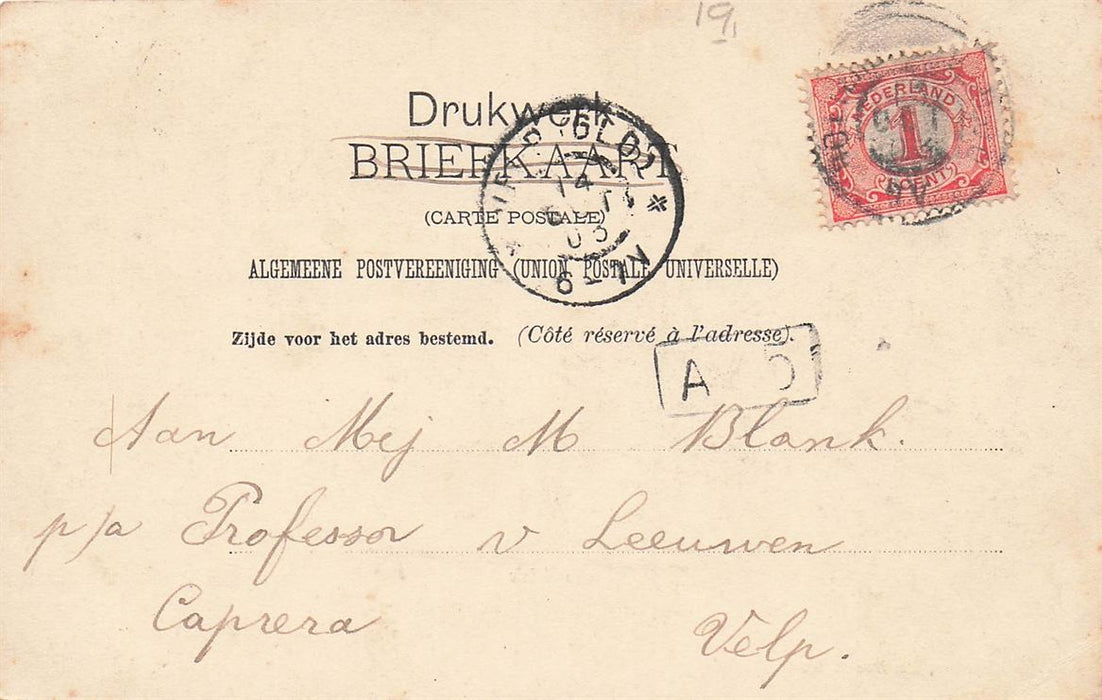 19
Drukwerk
BRIEFKAART
(CARTE POSTALE)
ALGEMEENE POSTVEREENIGING (UNION POSTALE UNIVERSELLE)
Zijde voor het adres bestemd. (Côté réservé à l'adresse).
NEDERLAND
1
CENT
14
03
A 5
Aan Mej M Blank.
p/a Professor v Leeuwen
Caprera Velp.